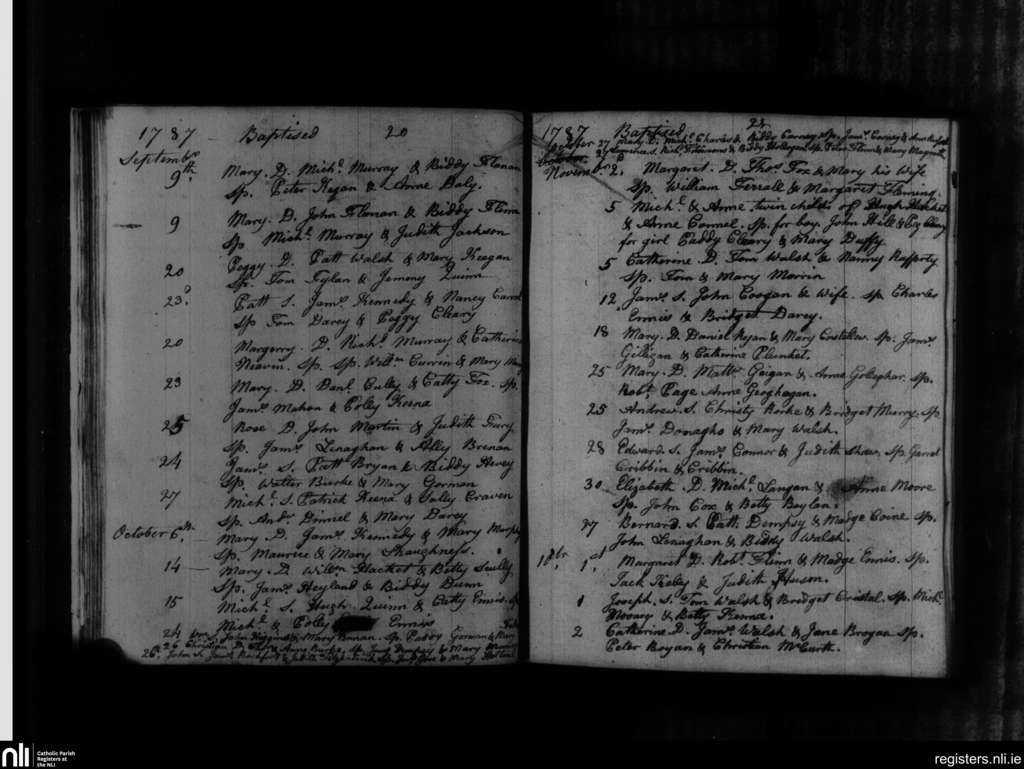 1787 Baptised 20
September
9th Mary. D. Michl Murray & Biddy Flanan
Sp. Peter Kegan & Anne Daly.
9 Mary. D. John Flanan & Biddy Flinn
Sp Michl Murray & Judith Jackson
20 Peggy. D. Patt Walsh & Mary Keagan
Sp. Tom Fylan & Jemeny Quinn
23d Patt S. Jams Kennedy & Nancy
Sp Tom Darcy & Peggy Cleary
20 Margerry. D. Richd Murray & Catherine
Sp. Sp. Willm Currin & Mary
23 Mary. D. Danl Culley & Catty Fox. Sp.
Jams Mahon & Poley Keena
25 Rose D. John Martin & Judith Fury
Sp. Jams Lenaghan & Ally Brenan
24 Jams S. Patt Bryan & Biddy Hevey
Sp. Walter Burke & Mary Gorman
27 Michl S. Patrick Keena & Salley Craven
Sp. Andw Dinnel & Mary Darcy
October 6th Mary. D. Jams Kennedy & Mary Murphy
Sp. Maurice & Mary Shaughness.
14 Mary. D Willm Hacket & Betty Scully
Sp. Jams Heyland & Biddy Dunn
15 Michl S. Hugh Quinn & Catty Ennis. Sp
Michl & Poley Ennis
24 John Higgins & Mary Bonan. Sp. Paddy Gorman & Mary
26 Christian D. & Anne Burke. Sp. Jams Dempsey & Mary
26. John S. Jams & Judith Sp. & Mary
1787 Baptised 22
October 27 Mary D. Michl Charles & Biddy Carney. Sp. Jams Carney & Anne
October & Biddy Sp. Peter Flinn & Mary
November 2d. Margaret. D. Thos Fox & Mary his Wife
Sp. William Ferrall & Margaret Fleming.
5 Michl & Anne twin childn of Hugh
& Anne Connel. Sp. for boy. John Hill & Cleary
for girl Paddy Cleary & Mary Duffy
5 Catherine D. Tom Walsh & Nanny Rafferty
Sp. Tom & Mary Morrin
12. Jams S. John Coogan & Wife. Sp Charles
Ennis & Bridget Darcy.
18 Mary. D. Daniel Ryan & Mary Costelow. Sp. Jams
Gilligan & Catherine Plunket.
25 Mary. D. Mattw Geigan & Anne Gollephar. Sp.
Robt Page Anne Geoghagan.
25 Andrew. S. Christy Rorke & Bridget Murry. Sp
Jams Donagho & Mary Walsh.
28 Edward S. Jams Connor & Judith Shaw. Sp. Garret
Cribbin & Cribbin.
30 Elizabeth. D. Michl Langan & Anne Moore
Sp. John Cox & Betty Boylan.
27 Bernard. S. Patt. Dempsy & Madge Coine Sp.
John Lenaghan & Biddy Walsh.
10br 1st Margaret D. Robt Flinn & Madge Ennis. Sp.
Jack Keley & Judith Huson.
1 Joseph. S. Tom Walsh & Bredget Cristal. Sp. Michl
Mooney & Betty Keena.
2 Catherine. D. Jams Walsh & Jane Brogan Sp.
Peter Bryan & Christian McCurth.
nli
Catholic Parish
Registers at
the NLI
registers.nli.ie